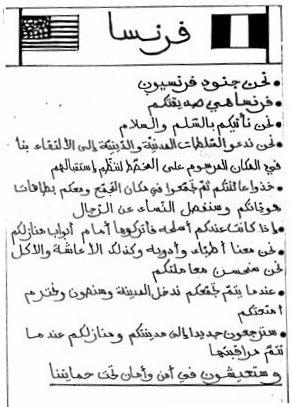 فرنسا
• نحن جنود فرنسيون
• فرنسا هي صديقتكم
• نحن نأتيكم بالسلم والسلام
• نحن ندعو السلطات المدنية والدينية إلى الالتقاء بنا
في المكان المرسوم على الخط لننظم إستقبالهم
• خذوا عائلتكم ثم تجمعوا في مكان التجمع ومعكم بطاقات
هوياتكم وسنفصل النساء عن الرجال
• إذا كانت عندكم أسلحة فاتركوها أمام أبواب منازلكم
• نحن معنا أطباء وأدوية وكذلك الأعاشة والأكل
نحن سنحسن معاملتكم
• عندما يتم تجمعكم ندخل المدينة وسنصون ونحترم
أمتعتكم
• سترجعون جديدا إلى مدينتكم ومنازلكم عندما
تتم مراقبتها
وستعيشون في أمن وأمان تحت حمايتنا